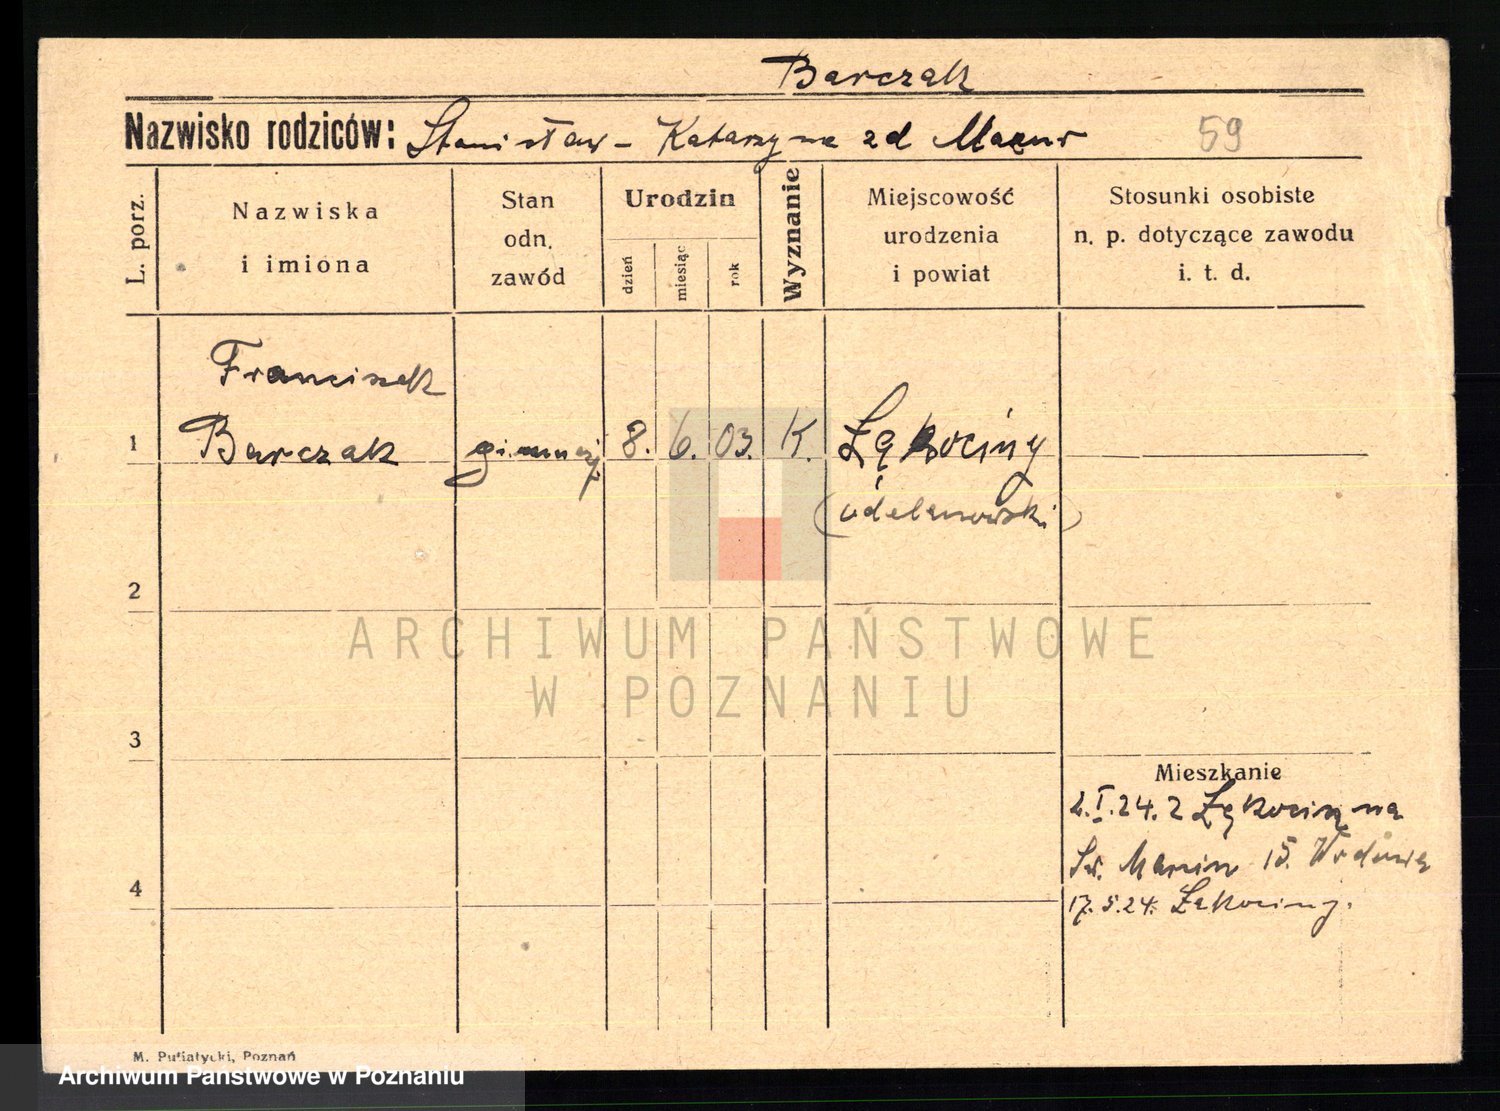 Barczak
Nazwisko rodziców: Stanisław - Katarzyna zd Mazur 59
L. porz.
Nazwiska
i imiona
Stan
odn.
zawód
Urodzin
dzień
miesiąc
rok
Wyznanie
Miejscowość
urodzenia
i powiat
Stosunki osobiste
n. p. dotyczące zawodu
i. t. d.
Franciszek
1 Barczak 8. 6. 03. K. Łąkociny
(odolanowski)
2
3
Mieszkanie
2.I.24. z Łąkociny na
Św. Marcin 15.
4
17.5.24. Łąkociny.
ARCHIWUM PAŃSTWOWE
W POZNANIU
M. Putiatycki, Poznań
Archiwum Państwowe w Poznaniu